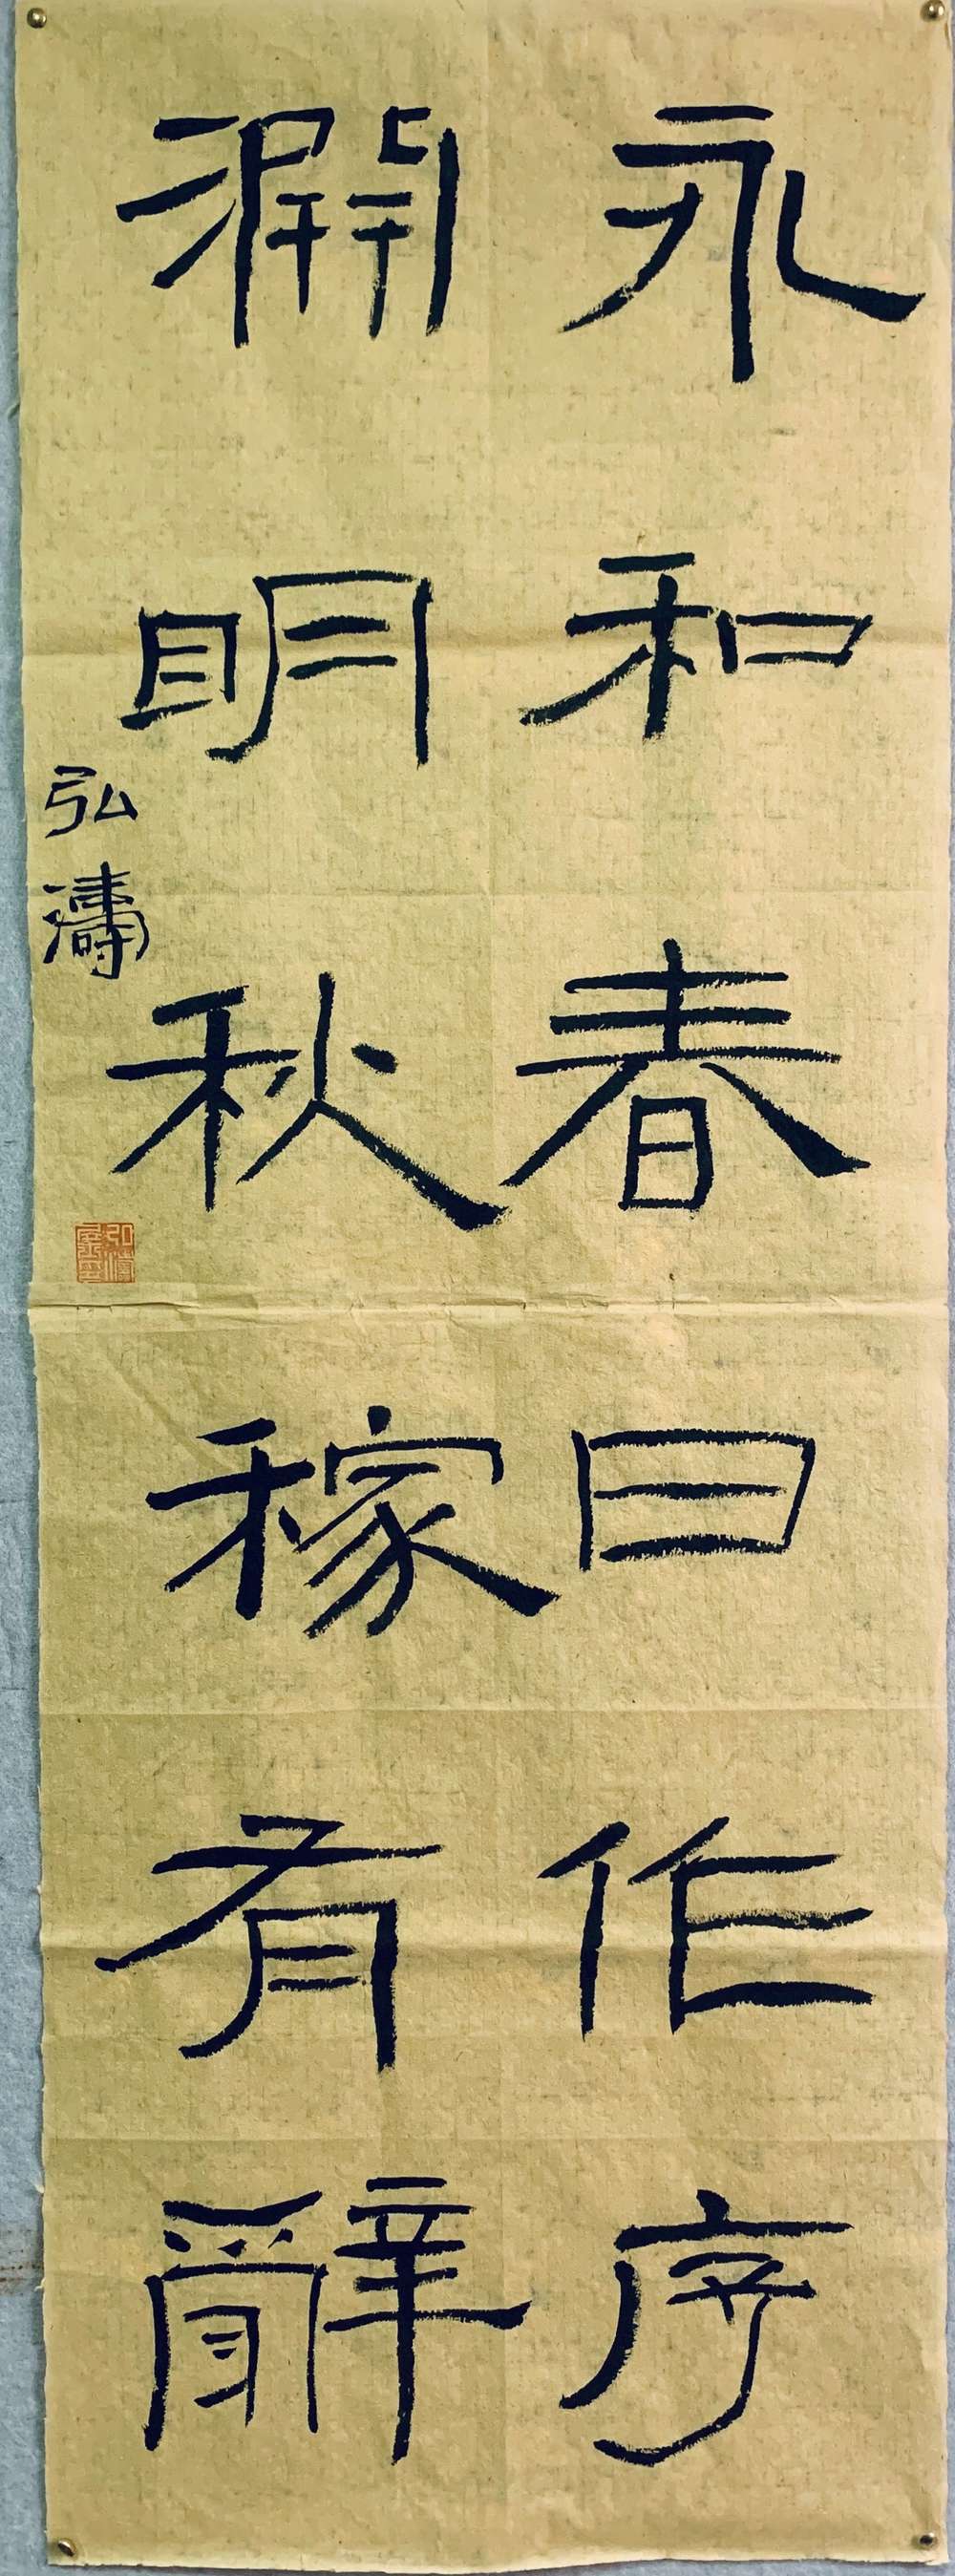 永和春日作序
淵明秋稼有辭
弘濤